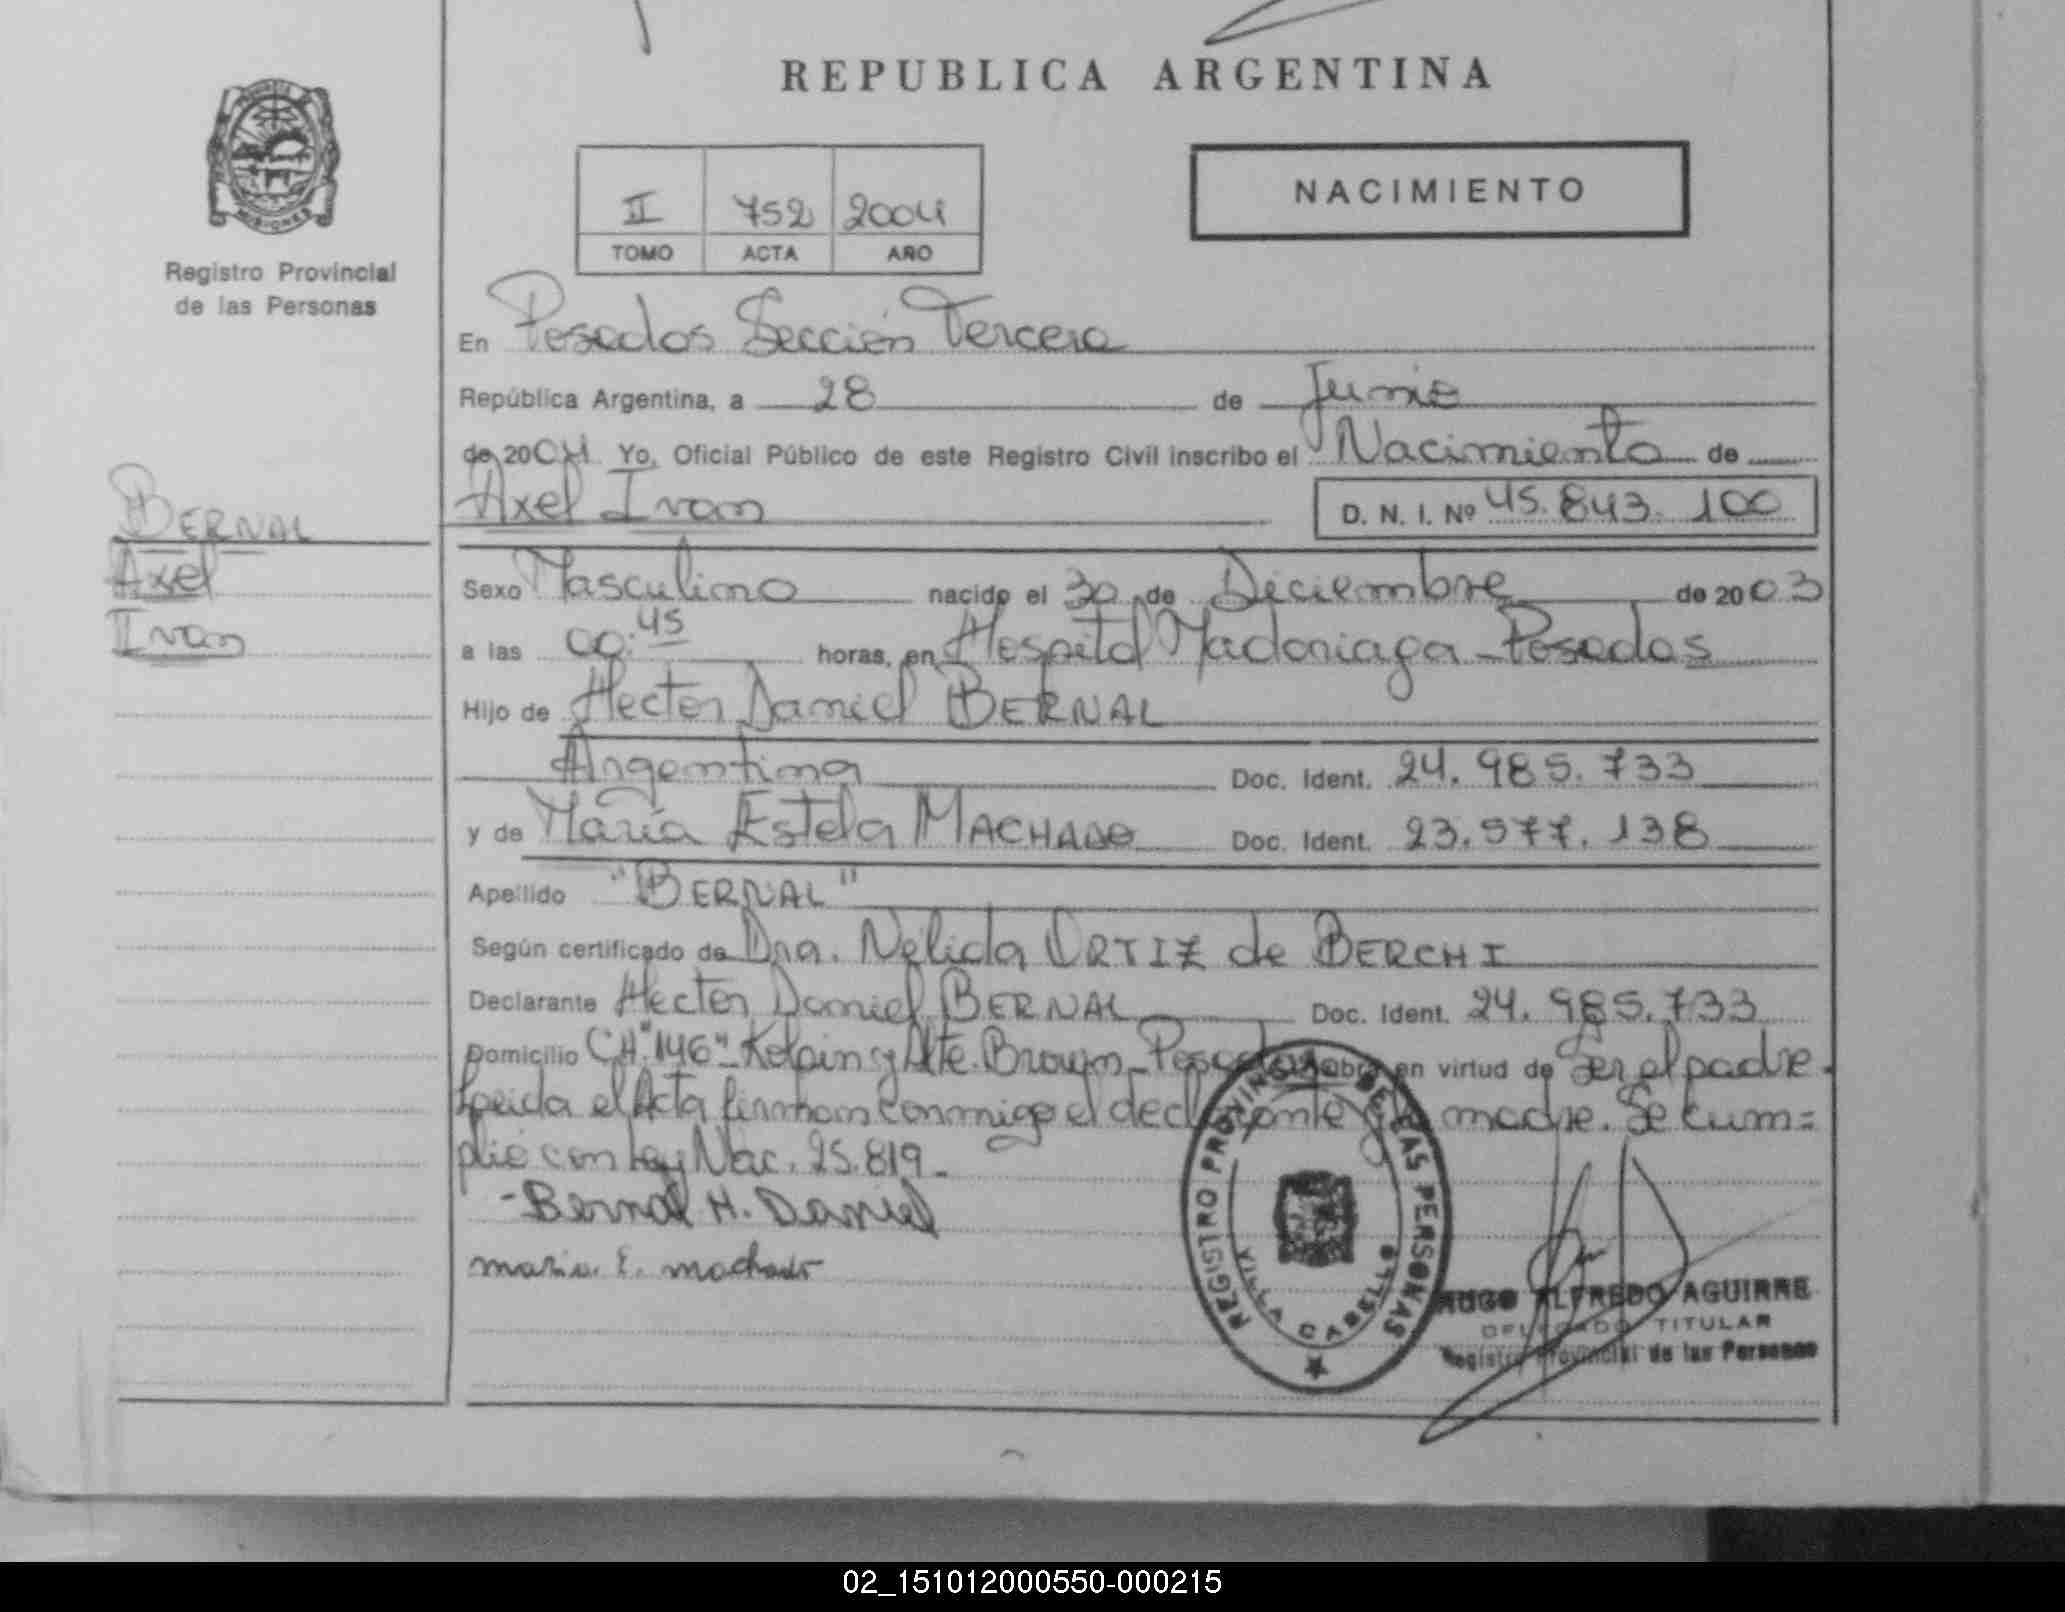 REPUBLICA ARGENTINA
MISIONES
Registro Provincial
de las Personas
II 752 2004
TOMO ACTA AÑO
NACIMIENTO
En Posadas Sección Tercera
República Argentina, a 28 de Junio
de 2004 Yo, Oficial Público de este Registro Civil inscribo el Nacimiento de
Axel Ivan D. N. I. Nº 45.843.100
BERNAL
Axel
Ivan
Sexo Masculino nacido el 30 de Diciembre de 2003
a las 00:45 horas, en Hospital Madariaga - Posadas
Hijo de Hector Daniel BERNAL
Argentina Doc. Ident. 24.985.733
y de María Estela MACHADO Doc. Ident. 23.577.138
Apellido "BERNAL"
Según certificado de Dra. Nelida ORTIZ de BERCHI
Declarante Hector Daniel BERNAL Doc. Ident. 24.985.733
Domicilio CH "146" - y Alte. Brown - Posadas obra en virtud de Ser el padre.
Leida el Acta firman conmigo el declarante y la madre. Se cum=
plió con Ley Nac. 25.819 -
- Bernal H. Daniel
maria E. machado
REGISTRO PROVINCIAL DE LAS PERSONAS
VILLA CABELLO
HUGO ALFREDO AGUIRRE
DELEGADO TITULAR
Registro Provincial de las Personas
02_151012000550-000215